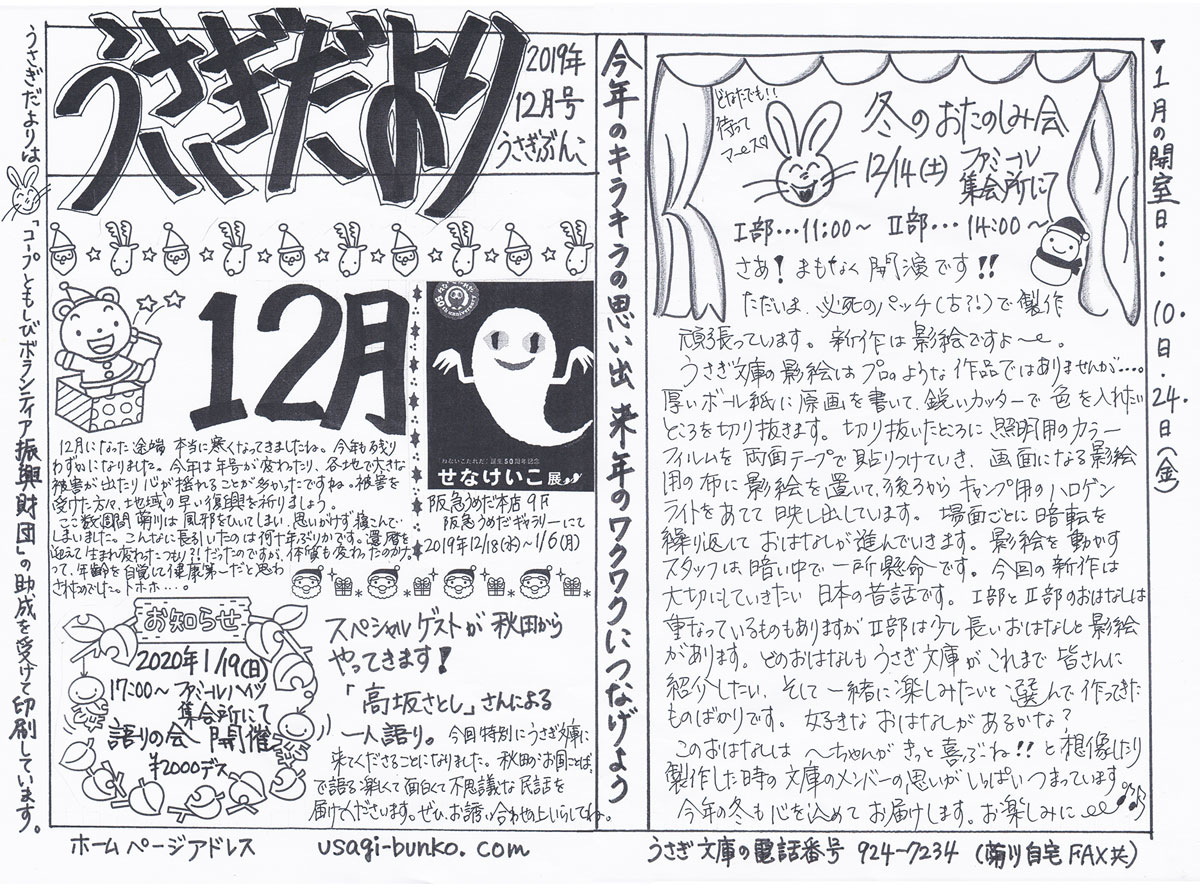 うさぎだより
2019年
12月号
うさぎぶんこ
うさぎだよりは「コープともしびボランティア振興財団」の助成を受けて印刷しています。
12月
12月になった途端 本当に寒くなってきましたね。今年も残り
わずかになりました。今年は年号が変わったり、各地で大きな
被害が出たり心が揺れることが多かったですね。被害を
受けた方々、地域の早い復興を祈りましょう。
ここ数週間 菊川は風邪をひいてしまい、思いがけず寝こんで
しまいました。こんなに長引いたのは何十年ぶりかです。還暦を
迎えて生まれ変わったつもり?!だったのですが、体質も変わったのかな
って、年齢を自覚して健康第一だと思わ
されたのでした。トホホ…。
ねないこだれだ
50th anniversary
「ねないこだれだ」誕生50周年記念
せなけいこ展
阪急うめだ本店 9F
阪急うめだギャラリーにて
2019年12/18(水)~1/6(月)
お知らせ
2020年1/19(日)
17:00~ ファミールハイツ
集会所にて
語りの会 開催
¥2000デス
スペシャルゲストが秋田から
やってきます!
「高坂さとし」さんによる
一人語り。今回特別にうさぎ文庫に
来てくださることになりました。秋田のお国ことば
で語る楽しくて面白くて不思議な民話を
届けてくださいます。ぜひ、お誘い合わせの上いらしてね。
今年のキラキラの思い出 来年のワクワクにつなげよう
どなたでも!!
待って
マース♡
冬のおたのしみ会
12/14(土) ファミール
集会所にて
Ⅰ部…11:00~ Ⅱ部…14:00~
さあ! まもなく開演です!!
ただいま、必死のパッチ(古?!)で製作
頑張っています。新作は影絵ですよ~。
うさぎ文庫の影絵はプロのような作品ではありませんが…。
厚いボール紙に原画を書いて、鋭いカッターで色を入れたい
ところを切り抜きます。切り抜いたところに照明用のカラー
フィルムを両面テープで貼りつけていき、画面になる影絵
用の布に影絵を置いて、後ろからキャンプ用のハロゲン
ライトをあてて映し出しています。場面ごとに暗転を
繰り返しておはなしが進んでいきます。影絵を動かす
スタッフは、暗い中で一所懸命です。今回の新作は
大切にしていきたい日本の昔話です。Ⅰ部とⅡ部のおはなしは
重なっているものもありますがⅡ部は少し長いおはなしと影絵
があります。どのおはなしもうさぎ文庫がこれまで皆さんに
紹介したい、そして一緒に楽しみたいと選んで作ってきた
ものばかりです。好きなおはなしがあるかな?
このおはなしは〜ちゃんがきっと喜ぶね!!と想像したり
製作した時の文庫のメンバーの思いがいっぱいつまっています。
今年の冬も心を込めてお届けします。お楽しみに
▼1月の開室日…10日・24日(金)
ホームページアドレス usagi-bunko.com
うさぎ文庫の電話番号 924-7234 (菊川自宅FAX共)